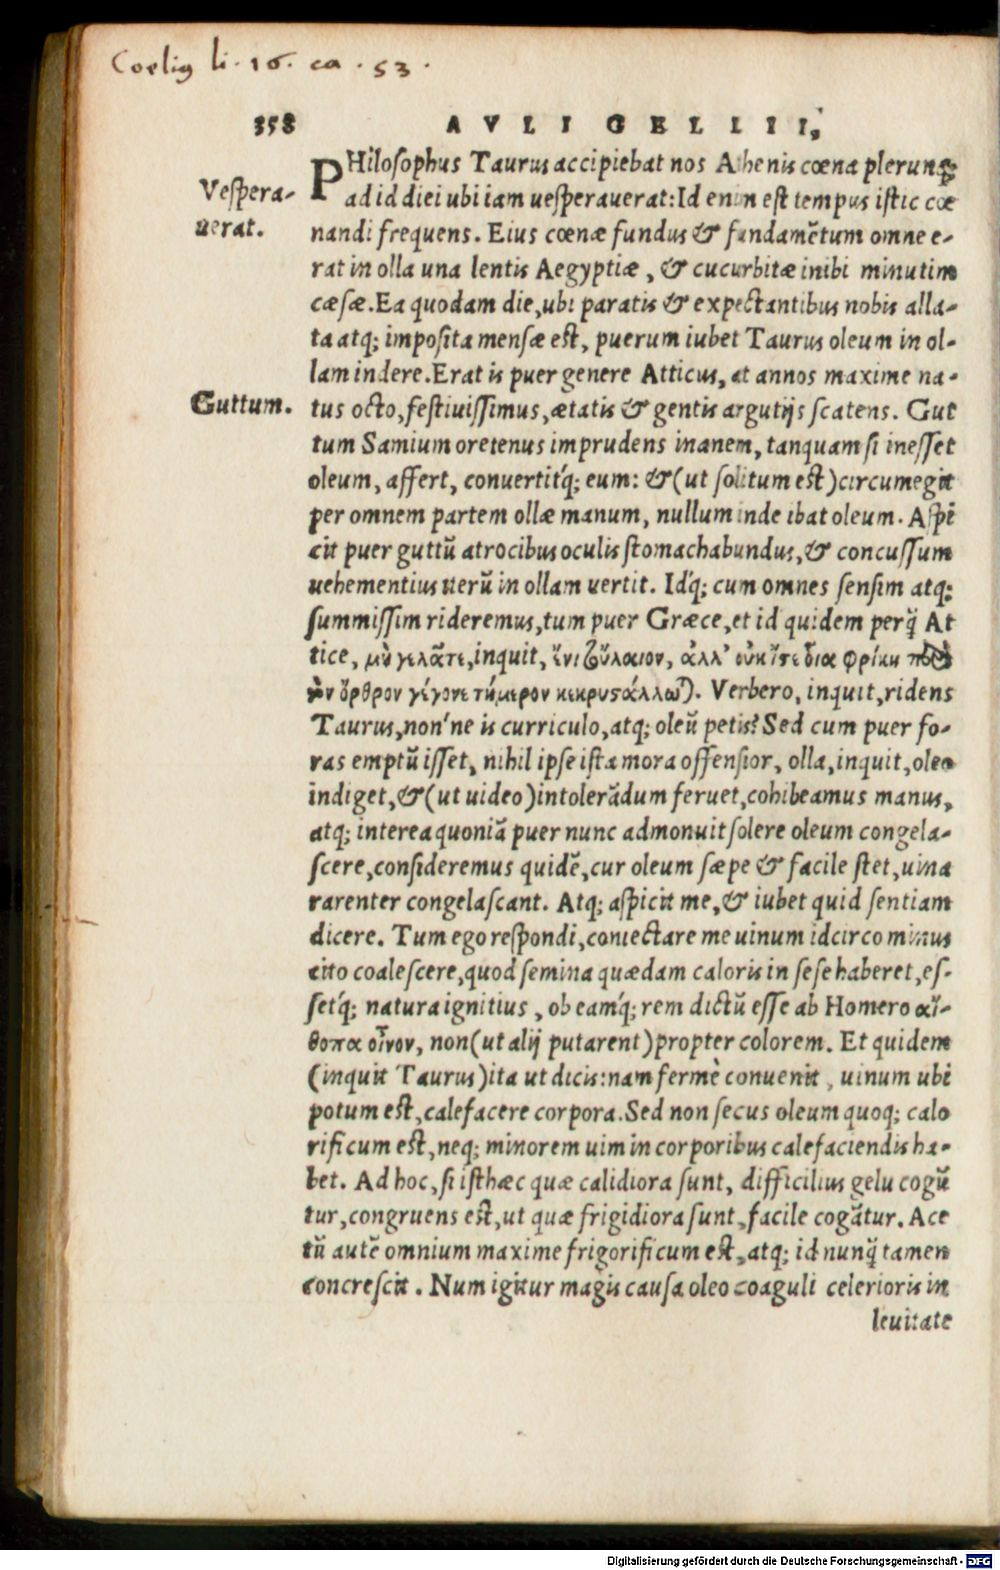 Coelius li. 16. ca. 53.
358 AVLI GELLII,
PHilosophus Taurus accipiebat nos Athenis cœna plerunq;
Vespera-
ad id diei ubi iam uesperauerat: Id enim est tempus istic cœ
uerat.
nandi frequens. Eius cœnæ fundus & fundamẽtum omne e-
rat in olla una lentis Aegyptiæ, & cucurbitæ inibi minutim
cæsæ. Ea quodam die, ubi paratis & expectantibus nobis alla-
ta atq; imposita mensæ est, puerum iubet Taurus oleum in ol-
lam indere. Erat is puer genere Atticus, at annos maxime na-
Guttum.
tus octo, festiuissimus, ætatis & gentis argutijs scatens. Gut
tum Samium oretenus imprudens inanem, tanquam si inesset
oleum, affert, conuertitq́; eum: & (ut solitum est) circumegit
per omnem partem ollæ manum, nullum inde ibat oleum. Aspi
cit puer guttũ atrocibus oculis stomachabundus, & concussum
uehementius uerũ in ollam uertit. Idq́; cum omnes sensim atq;
summissim rideremus, tum puer Græce, et id quidem perq̃ At
tice, μὴ γελᾶτε, inquit, ἔνι τὔλαιον, ἀλλ' οὐκ ἴτε δια φρίκη
ὄρθρον γέγονε τήμερον κεκρυςάλλωτ). Verbero, inquit, ridens
Taurus, non'ne is curriculo, atq; oleũ petis? Sed cum puer fo-
ras emptũ isset, nihil ipse ista mora offensior, olla, inquit, oleo
indiget, & (ut uideo) intolerãdum feruet, cohibeamus manus,
atq; interea quoniã puer nunc admonuit solere oleum congela-
scere, consideremus quidẽ, cur oleum sæpe & facile stet, uina
rarenter congelascant. Atq; aspicit me, & iubet quid sentiam
dicere. Tum ego respondi, coniectare me uinum idcirco minus
cito coalescere, quod semina quædam caloris in sese haberet, es-
setq́; natura ignitius, ob eamq́; rem dictũ esse ab Homero αἴ-
θοπα οἶνον, non (ut alij putarent) propter colorem. Et quidem
(inquit Taurus) ita ut dicis: nam fermè conuenit, uinum ubi
potum est, calefacere corpora. Sed non secus oleum quoq; calo
rificum est, neq; minorem uim in corporibus calefaciendis ha-
bet. Ad hoc, si isthæc quæ calidiora sunt, difficilius gelu cogũ
tur, congruens est, ut quæ frigidiora sunt, facile cogãtur. Ace
tũ autẽ omnium maxime frigorificum est, atq; id nunq̃ tamen
concrescit. Num igitur magis causa oleo coaguli celerioris in
leuitate
Digitalisierung gefördert durch die Deutsche Forschungsgemeinschaft - DFG